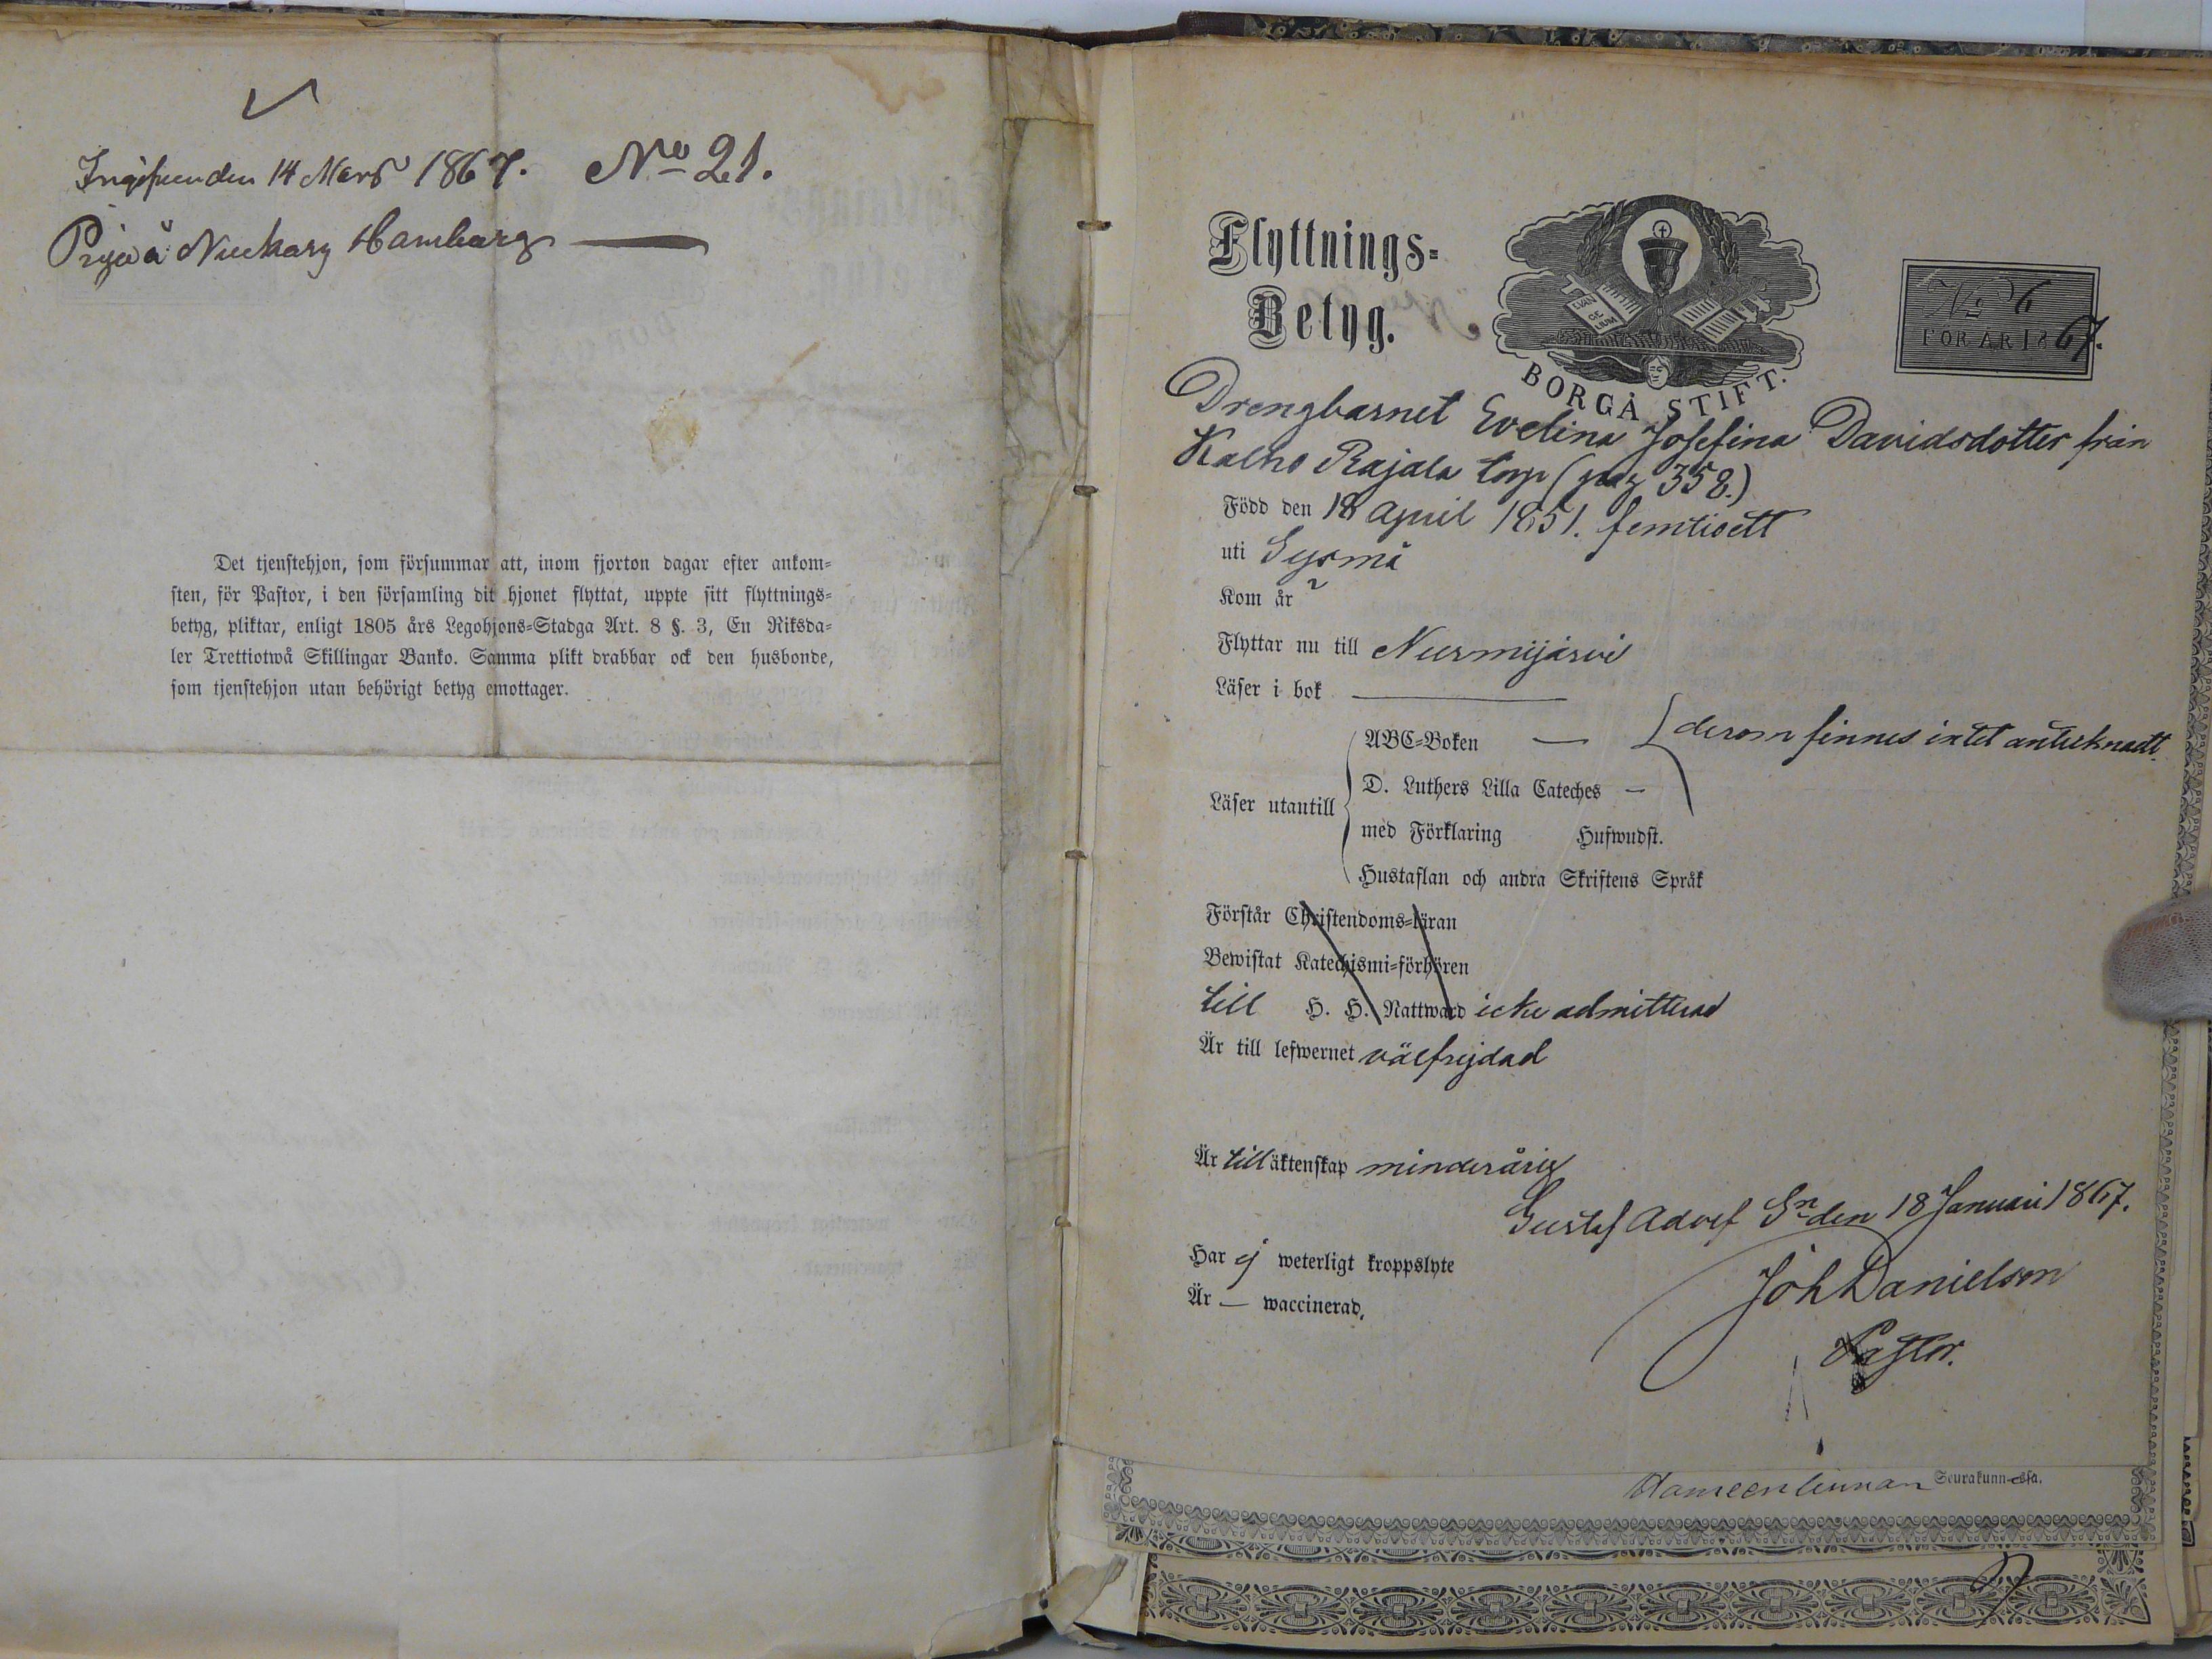 Ingifven den 14 Mars 1867. No 21.
Piga å Nuckary Hamburg
Det tjenstehjon, som försummar att, inom fjorton dagar efter ankom=
sten, för Pastor, i den församling dit hjonet flyttat, uppte sitt flyttnings=
betyg, pliktar, enligt 1805 års Legohjons=Stadga Art. 8 §. 3, En Riksda=
ler Trettiotwå Skillingar Banko. Samma plikt drabbar ock den husbonde,
som tjenstehjon utan behörigt betyg emottager.
Flyttnings=
Betyg.
EVAN
GE
LIUM
BORGÅ STIFT.
No 6
FÖR ÅR 1867.
Drengbarnet Evelina Josefina Davidsdotter från
Kalho Rajala torp (pag 358.)
Född den 18 April 1851. femtioett
uti Sysmä
Kom år
Flyttar nu till Nurmijärvi
Läser i bok —
Läser utantill
ABC=Boken — derom finnes intet antecknadt.
D. Luthers Lilla Cateches —
med Förklaring Hufwudst.
Hustaflan och andra Skriftens Språk
Förstår Christendoms=läran
Bewistat Katechismi=förhören
till H. H. Nattward icke admitterad
Är till lefwernet välfrejdad
Är till äktenskap minderårig
Gustaf Adolf Sn den 18 Januari 1867.
Har ej weterligt kroppslyte
Joh Danielson
Är — waccinerad,
Pastor.
Hämeenlinnan Seurakunnassa.